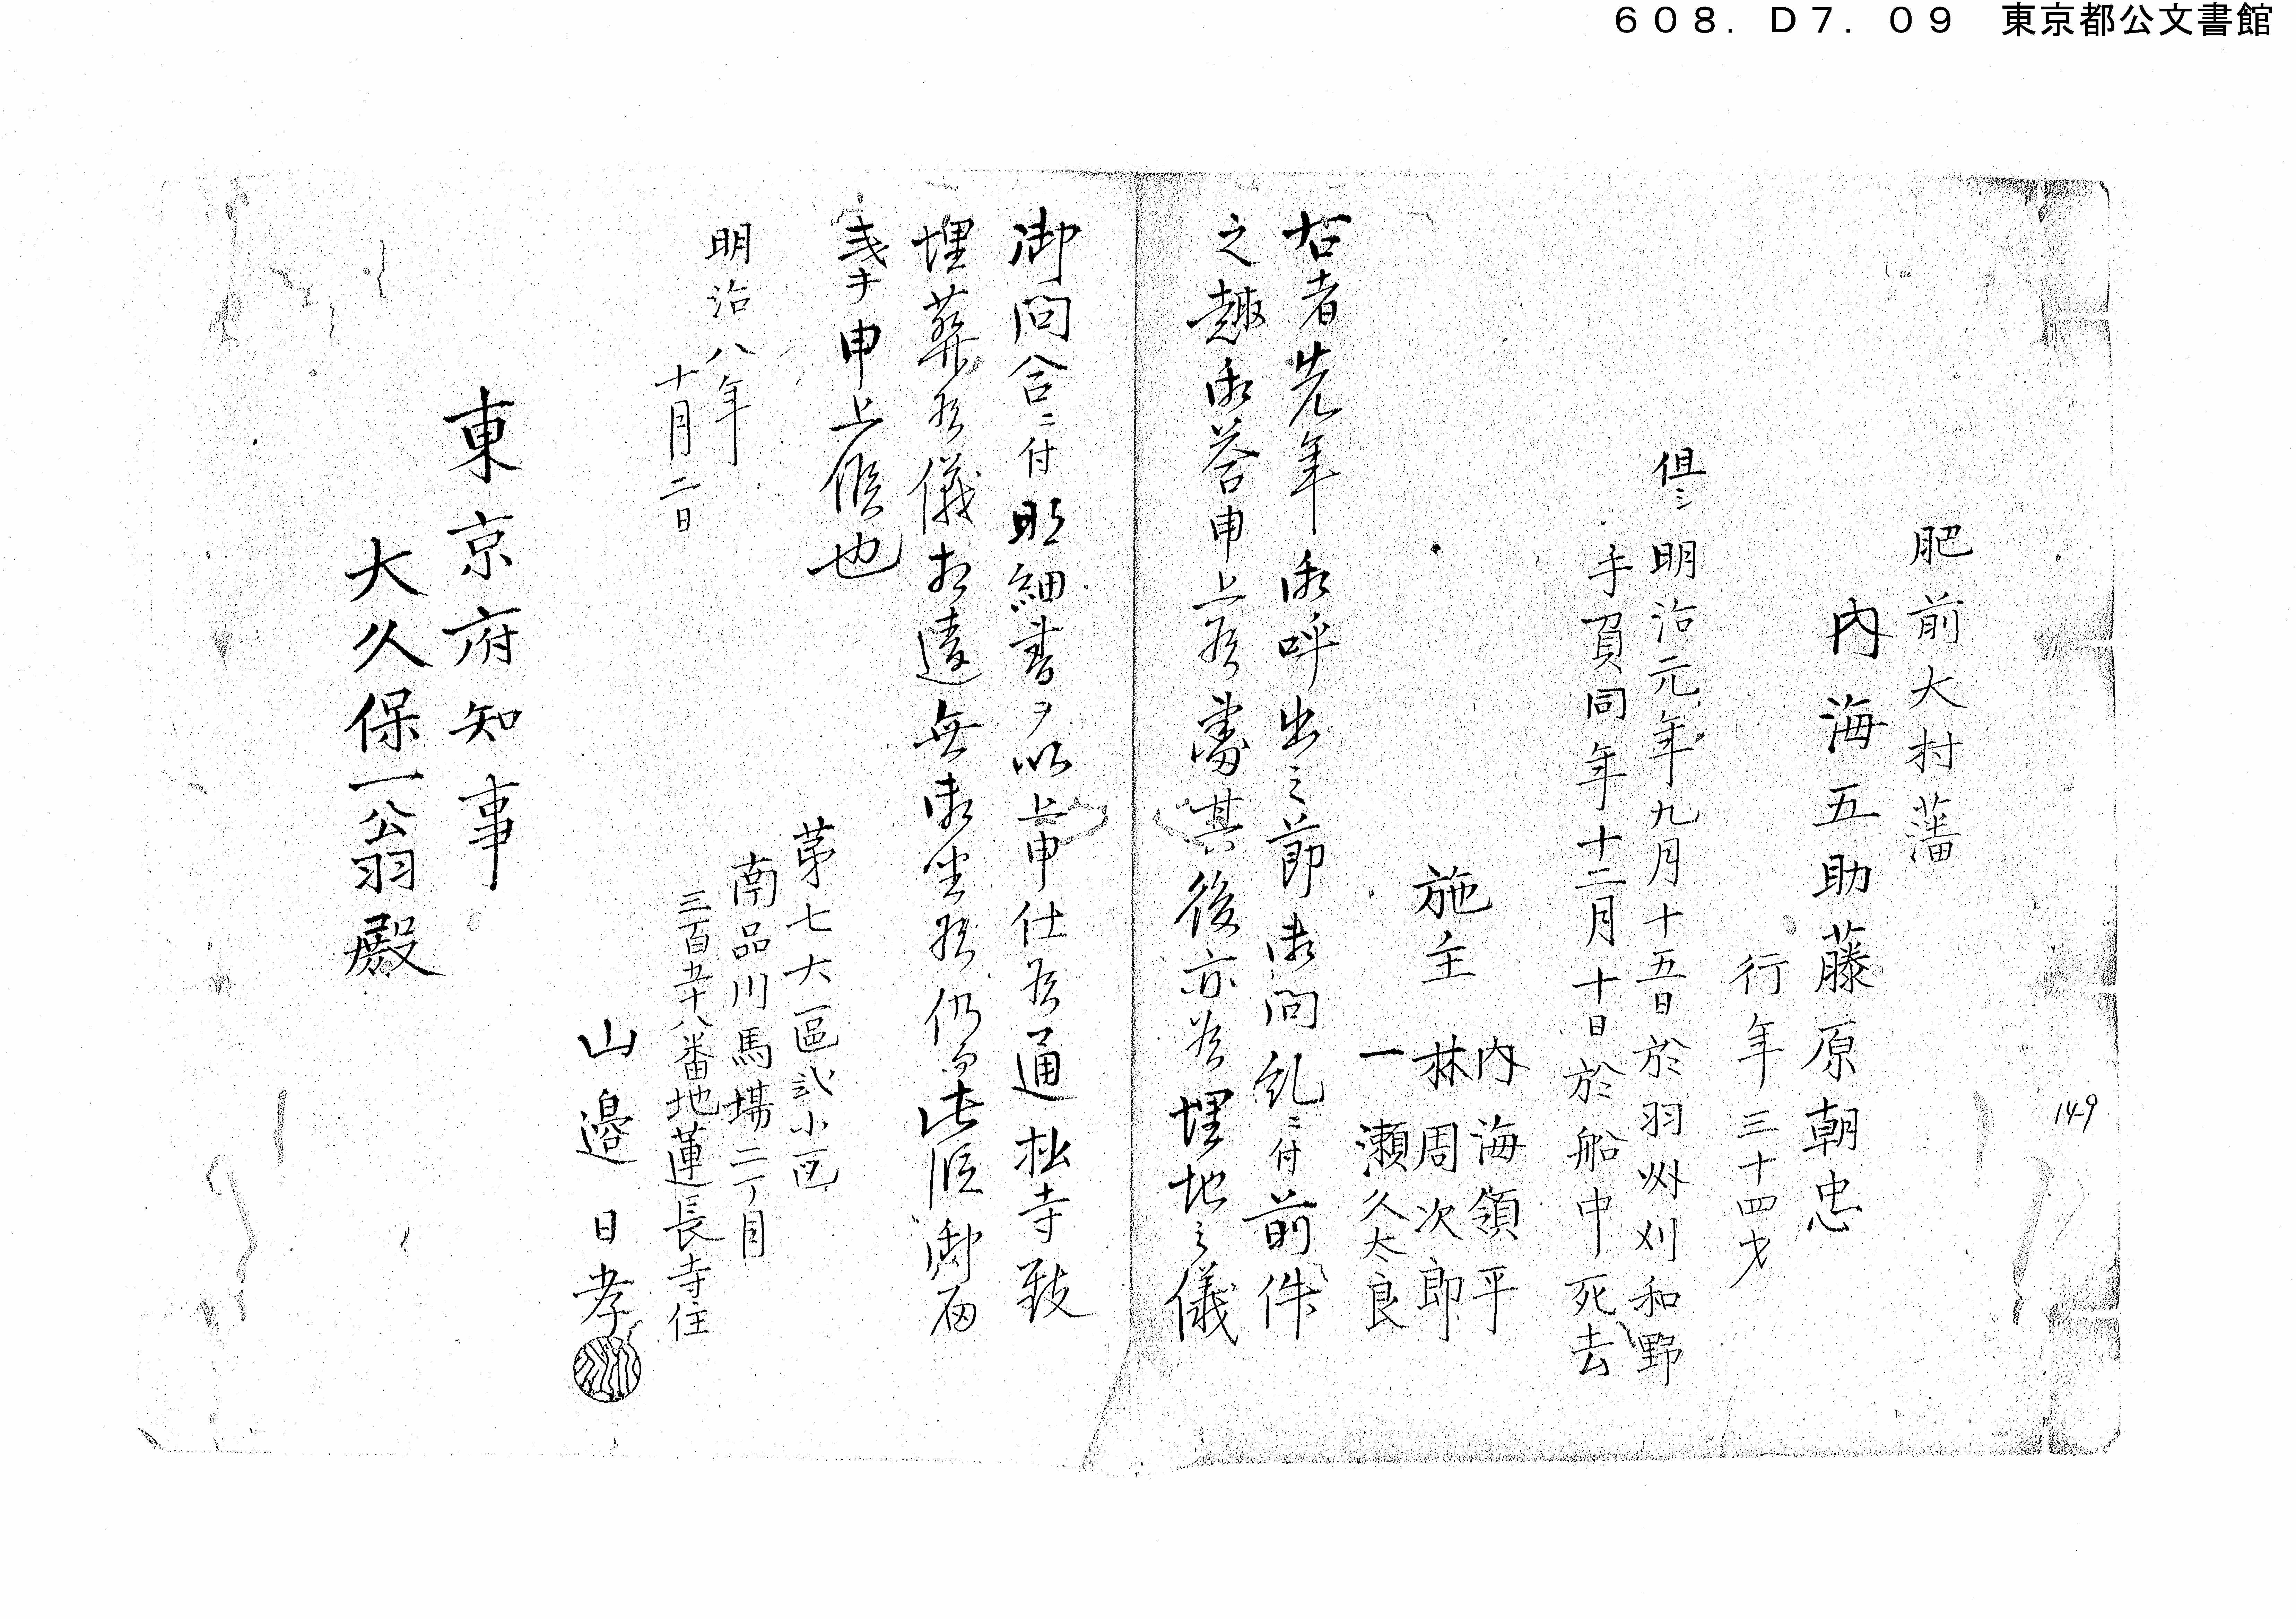 608.D7.09 東京都公文書館
149
肥前大村藩
内海五助藤原朝忠
行年三十四才
但シ明治元年九月十五日於羽州刈和野
手負同年十二月十日於船中死去
施主
内海領平
林周次郎
一瀬久太良
右者先年御呼出之節御問糺ニ付前件
之趣御答申上候處其後亦候埋地之儀
御問合ニ付明細書ヲ以上申仕候通拙寺致
埋葬候儀相違無御坐候仍而此段御届
申上候也
明治八年
十月二日
第七大區弐小区
南品川馬場二丁目
三百五十八番地蓮長寺住
山邉日孝
東京府知事
大久保一翁殿